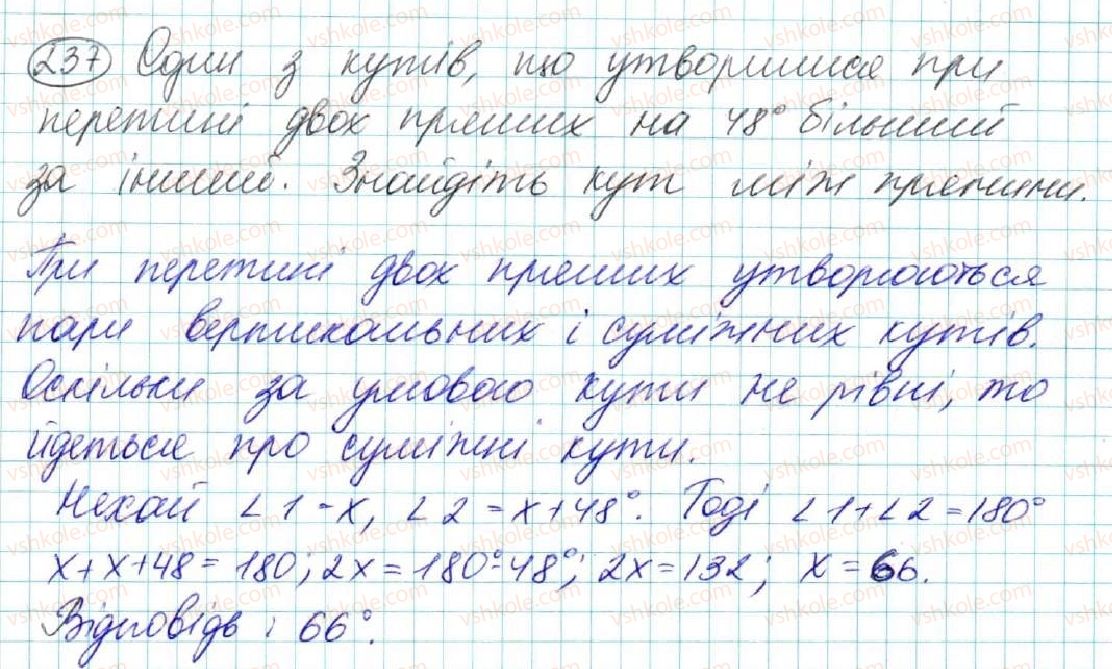 237 Один з кутів, що утворилися при
перетині двох прямих на 48° більший
за інший. Знайдіть кут між прямими.
При перетині двох прямих утворюються
пари вертикальних і суміжних кутів.
Оскільки за умовою кути не рівні, то
йдеться про суміжні кути.
Нехай ∠1 - x, ∠2 = x + 48°. Тоді ∠1 + ∠2 = 180°
x + x + 48 = 180; 2x = 180° - 48°; 2x = 132; x = 66.
Відповідь: 66°.